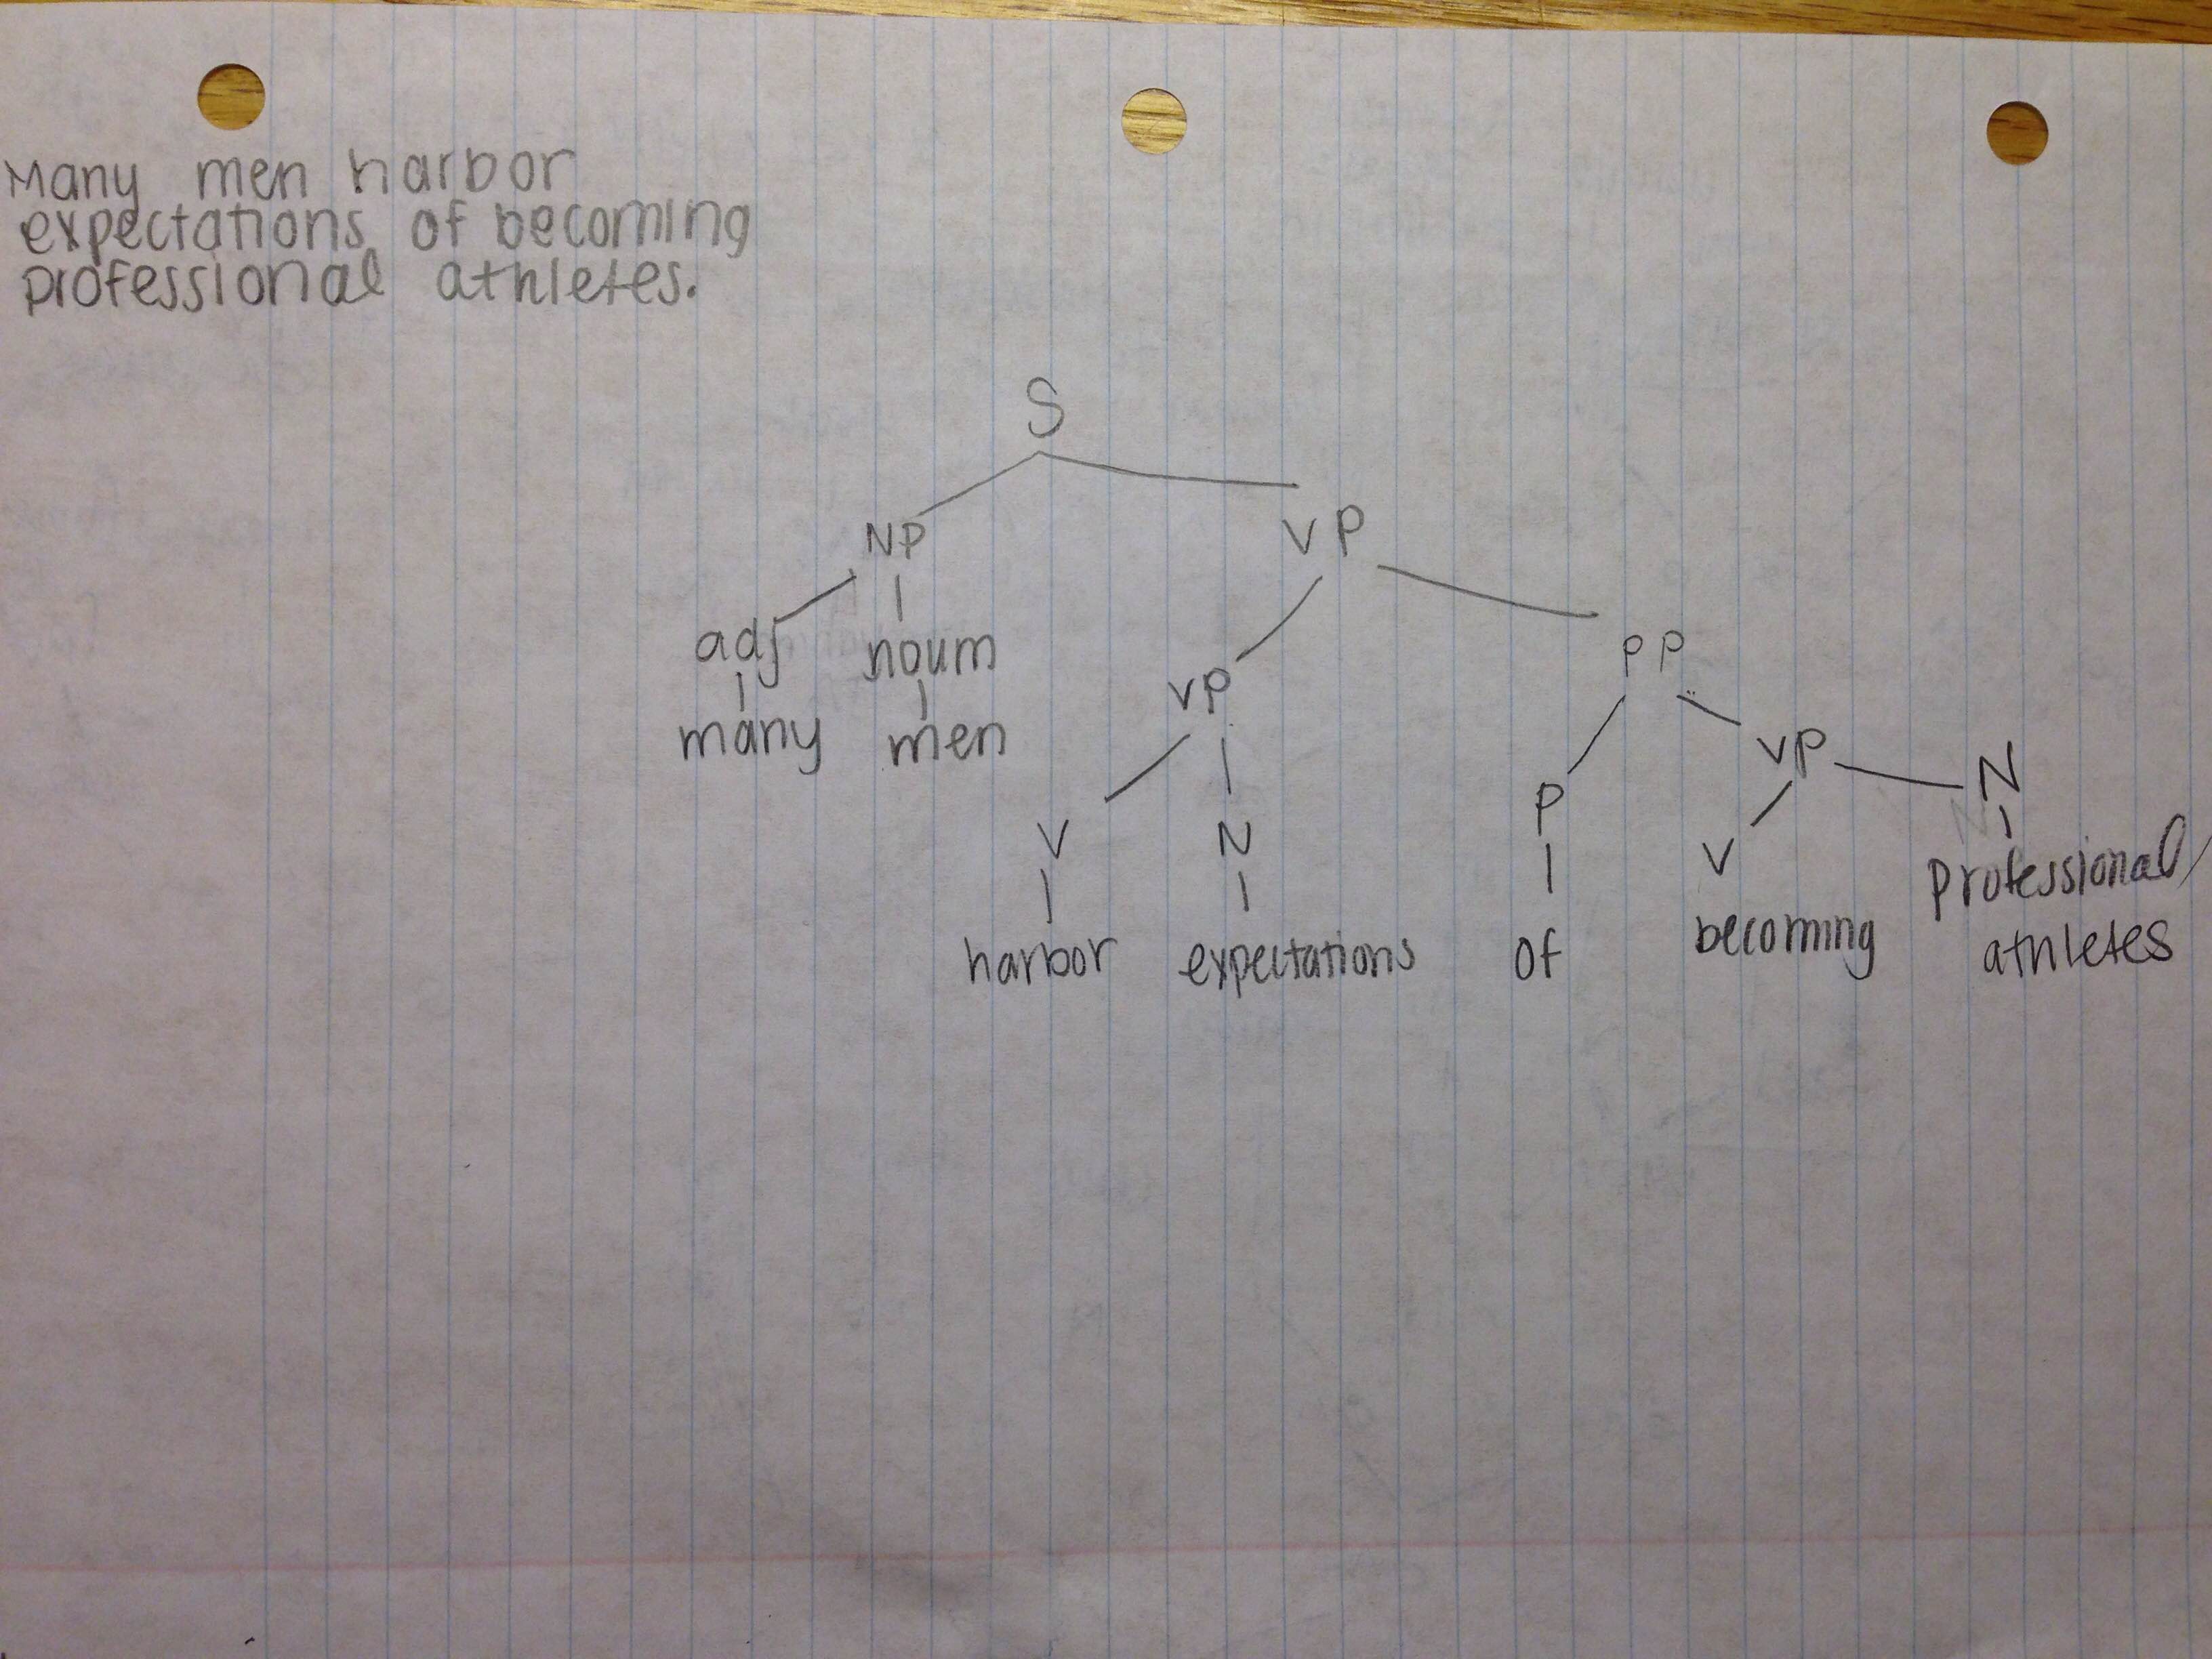 Many men harbor
expectations of becoming
professional athletes.
S
NP VP
adj noun VP PP
many men V N P VP
harbor expectations of V N
becoming professional/
athletes